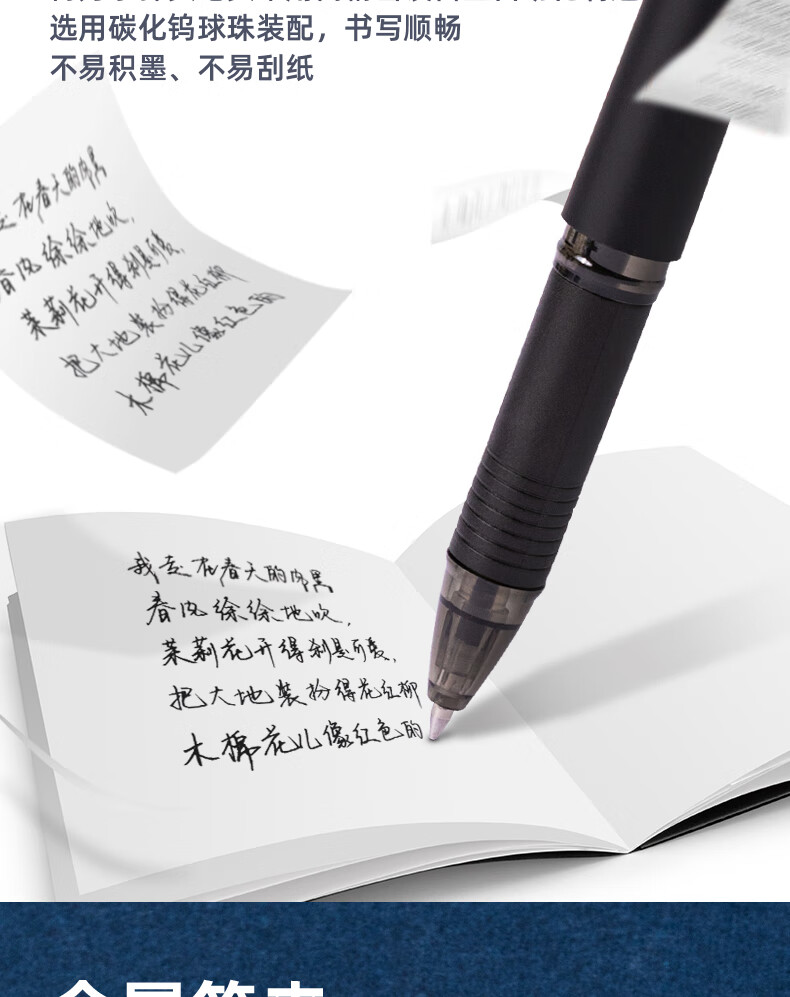 选用碳化钨球珠装配，书写顺畅
不易积墨、不易刮纸
在春天的
春风徐徐地吹，
茉莉花开得刹是可爱，
把大地装扮得花红柳
木棉花儿像红色的
我走在春天的
春风徐徐地吹，
茉莉花开得刹是可爱，
把大地装扮得花红柳
木棉花儿像红色的